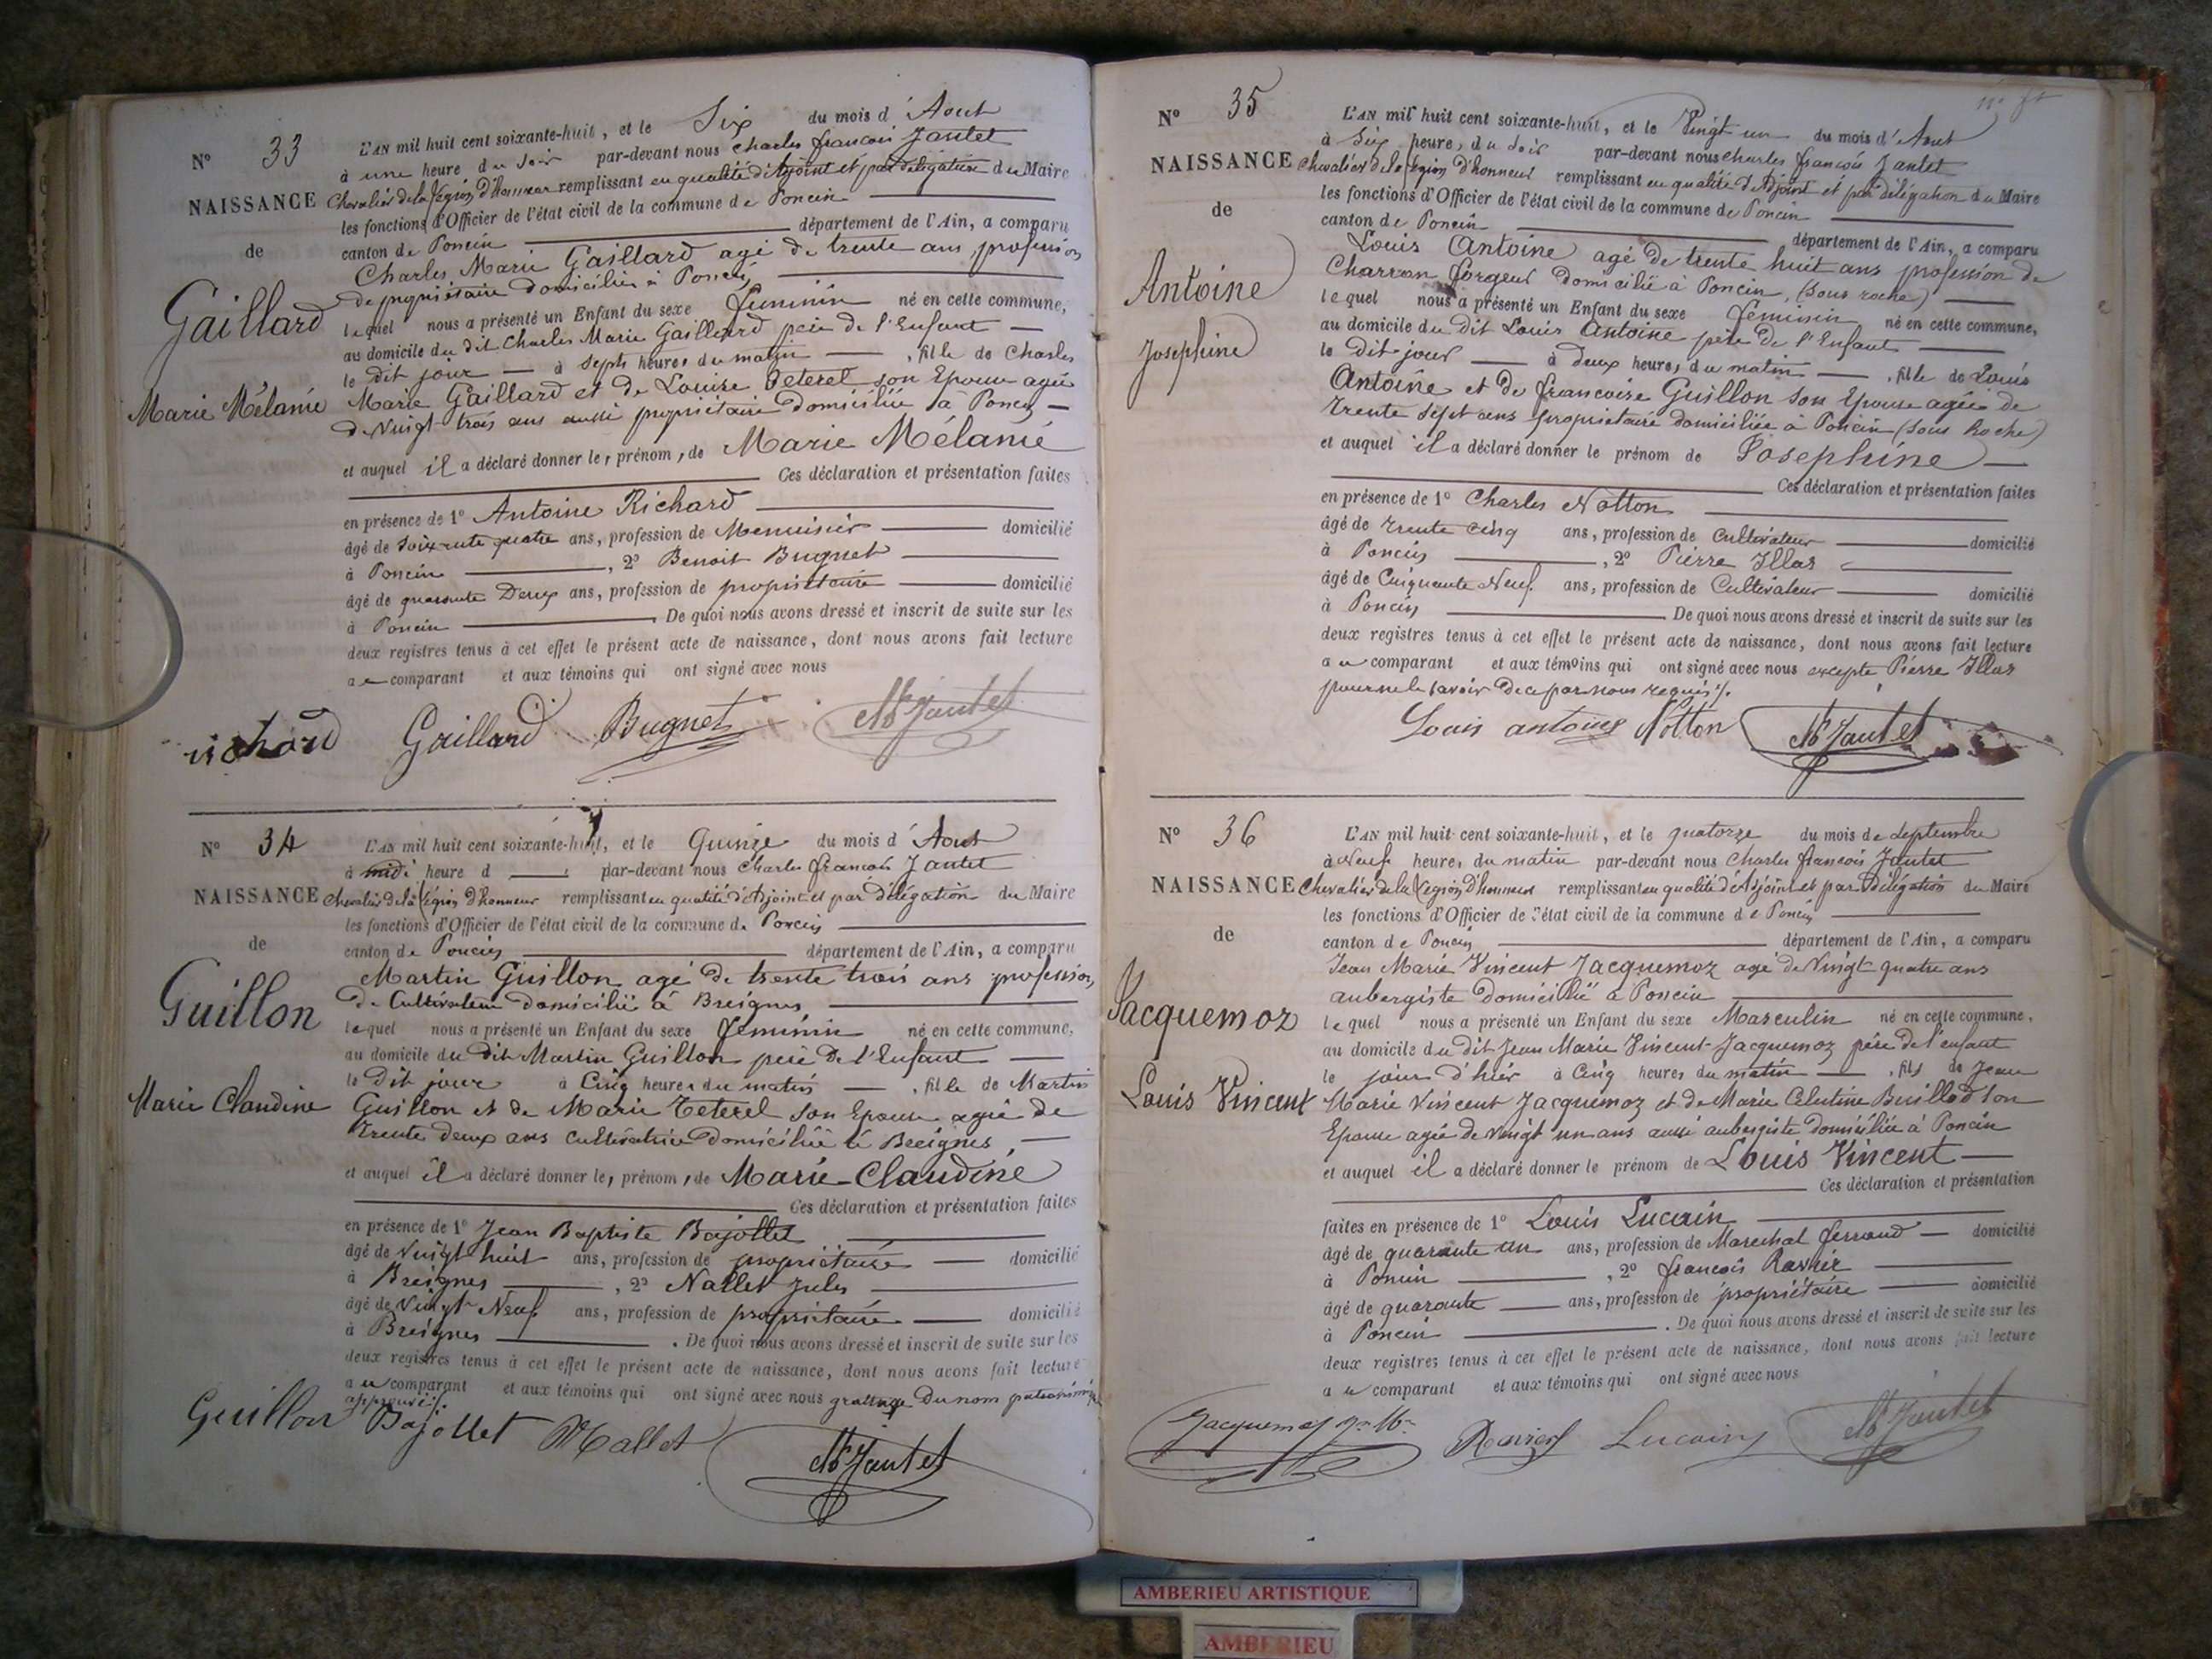 N° 33
NAISSANCE
de
Gaillard
Marie Mélanie
L'AN mil huit cent soixante-huit, et le Six du mois d'Aout
à une heure du soir par-devant nous Charles françois Jantet
Chevalier de la Légion D'honneur remplissant en qualité d'Adjoint et par délégation du Maire
les fonctions d'Officier de l'état civil de la commune de Poncin
canton de Poncin département de l'Ain, a comparu
Charles Marie Gaillard agé de trente ans, profession
de propriétaire domicilié à Poncin
lequel nous a présenté un Enfant du sexe feminin né en cette commune,
au domicile du dit Charles Marie Gaillard père de l'Enfant
le dit jour à Septs heures du matin, fille de Charles
Marie Gaillard et de Louise Teterel son Epouse agée
de Vingt trois ans aussi propriétaire domiciliée à Poncin
et auquel il a déclaré donner les prénoms de Marie Mélanie
Ces déclaration et présentation faites
en présence de 1° Antoine Richard
âgé de Soixante quatre ans, profession de Menuisier domicilié
à Poncin, 2° Benoit Bugnet
âgé de quarante Deux ans, profession de propriétaire domicilié
à Poncin. De quoi nous avons dressé et inscrit de suite sur les
deux registres tenus à cet effet le présent acte de naissance, dont nous avons fait lecture
au comparant et aux témoins qui ont signé avec nous
richard Gaillard Bugnet Ch Jantet
N° 34
NAISSANCE
de
Guillon
Marie Claudine
L'AN mil huit cent soixante-huit, et le Quinze du mois d'Aout
à midi heure d par-devant nous Charles françois Jantet
Chevalier de la Légion d'honneur remplissant en qualité d'Adjoint et par délégation du Maire
les fonctions d'Officier de l'état civil de la commune de Poncin
canton de Poncin département de l'Ain, a comparu
Martin Guillon agé de trente trois ans profession
de Cultivateur domicilié à Breignes
lequel nous a présenté un Enfant du sexe feminin né en cette commune,
au domicile du dit Martin Guillon père de l'Enfant
le Dit jour à Cinq heures du matin, fille de Martin
Guillon et de Marie Teterel son Epouse agée de
trente deux ans cultivatrice domiciliée à Breignes
et auquel il a déclaré donner les prénoms de Marie-Claudine
Ces déclaration et présentation faites
en présence de 1° Jean Baptiste Bajollet
âgé de Vingt huit ans, profession de propriétaire domicilié
à Breignes, 2° Nallet Jules
âgé de Vingt Neuf ans, profession de propriétaire domicilié
à Breignes. De quoi nous avons dressé et inscrit de suite sur les
deux registres tenus à cet effet le présent acte de naissance, dont nous avons fait lecture
au comparant et aux témoins qui ont signé avec nous grattage Du nom
approuvé
Guillon Bajollet Nallet Ch Jantet
N° 35
NAISSANCE
de
Antoine
Josephine
L'AN mil huit cent soixante-huit, et le Vingt un du mois d'Aout
à Six heures du soir par-devant nous Charles françois Jantet
Chevalier de la Légion d'honneur remplissant en qualité d'Adjoint et par délégation du Maire
les fonctions d'Officier de l'état civil de la commune de Poncin
canton de Poncin département de l'Ain, a comparu
Louis Antoine agé de trente huit ans profession de
Charron forgeur domicilié à Poncin, (sous roche)
lequel nous a présenté un Enfant du sexe feminin né en cette commune,
au domicile du dit Louis Antoine père de l'Enfant
le dit jour à deux heures du matin, fille de Louis
Antoine et de francoise Guillon son Epouse agée de
trente sept ans propriétaire domiciliée à Poncin (sous Roche)
et auquel il a déclaré donner le prénom de Josephine
Ces déclaration et présentation faites
en présence de 1° Charles Notton
âgé de trente cinq ans, profession de Cultivateur domicilié
à Poncin, 2° Pierre Illas
âgé de Cinquante Neuf ans, profession de Cultivateur domicilié
à Poncin De quoi nous avons dressé et inscrit de suite sur les
deux registres tenus à cet effet le présent acte de naissance, dont nous avons fait lecture
au comparant et aux témoins qui ont signé avec nous excepte Pierre Illas
pour ne le savoir de ce par nous requis
Louis antoine Notton Ch Jantet
N° 36
NAISSANCE
de
Jacquemoz
Louis Vincent
L'AN mil huit cent soixante-huit, et le quatorze du mois de Septembre
à Neuf heures du matin par-devant nous Charles françois Jantet
Chevalier de la Légion d'honneur remplissant en qualité d'Adjoint et par Délégation du Maire
les fonctions d'Officier de l'état civil de la commune de Poncin
canton de Poncin département de l'Ain, a comparu
Jean Marie Vincent Jacquemoz agé de Vingt quatre ans
aubergiste domicilié à Poncin
lequel nous a présenté un Enfant du sexe Masculin né en cette commune,
au domicile du dit Jean Marie Vincent Jacquemoz père de l'enfant
le jour d'hier à Cinq heures du matin, fils de Jean
Marie Vincent Jacquemoz et de Marie Celestine Buillod son
Epouse agée de vingt un ans aussi aubergiste domiciliée à Poncin
et auquel il a déclaré donner le prénom de Louis Vincent
Ces déclaration et présentation
faites en présence de 1° Louis Lucain
âgé de quarante un ans, profession de Marechal ferrand domicilié
à Poncin, 2° françois Ravier
âgé de quarante ans, profession de propriétaire domicilié
à Poncin. De quoi nous avons dressé et inscrit de suite sur les
deux registres tenus à cet effet le présent acte de naissance, dont nous avons fait lecture
au comparant et aux témoins qui ont signé avec nous
Jacquemoz Ravier Lucain Ch Jantet
AMBERIEU ARTISTIQUE
AMBERIEU